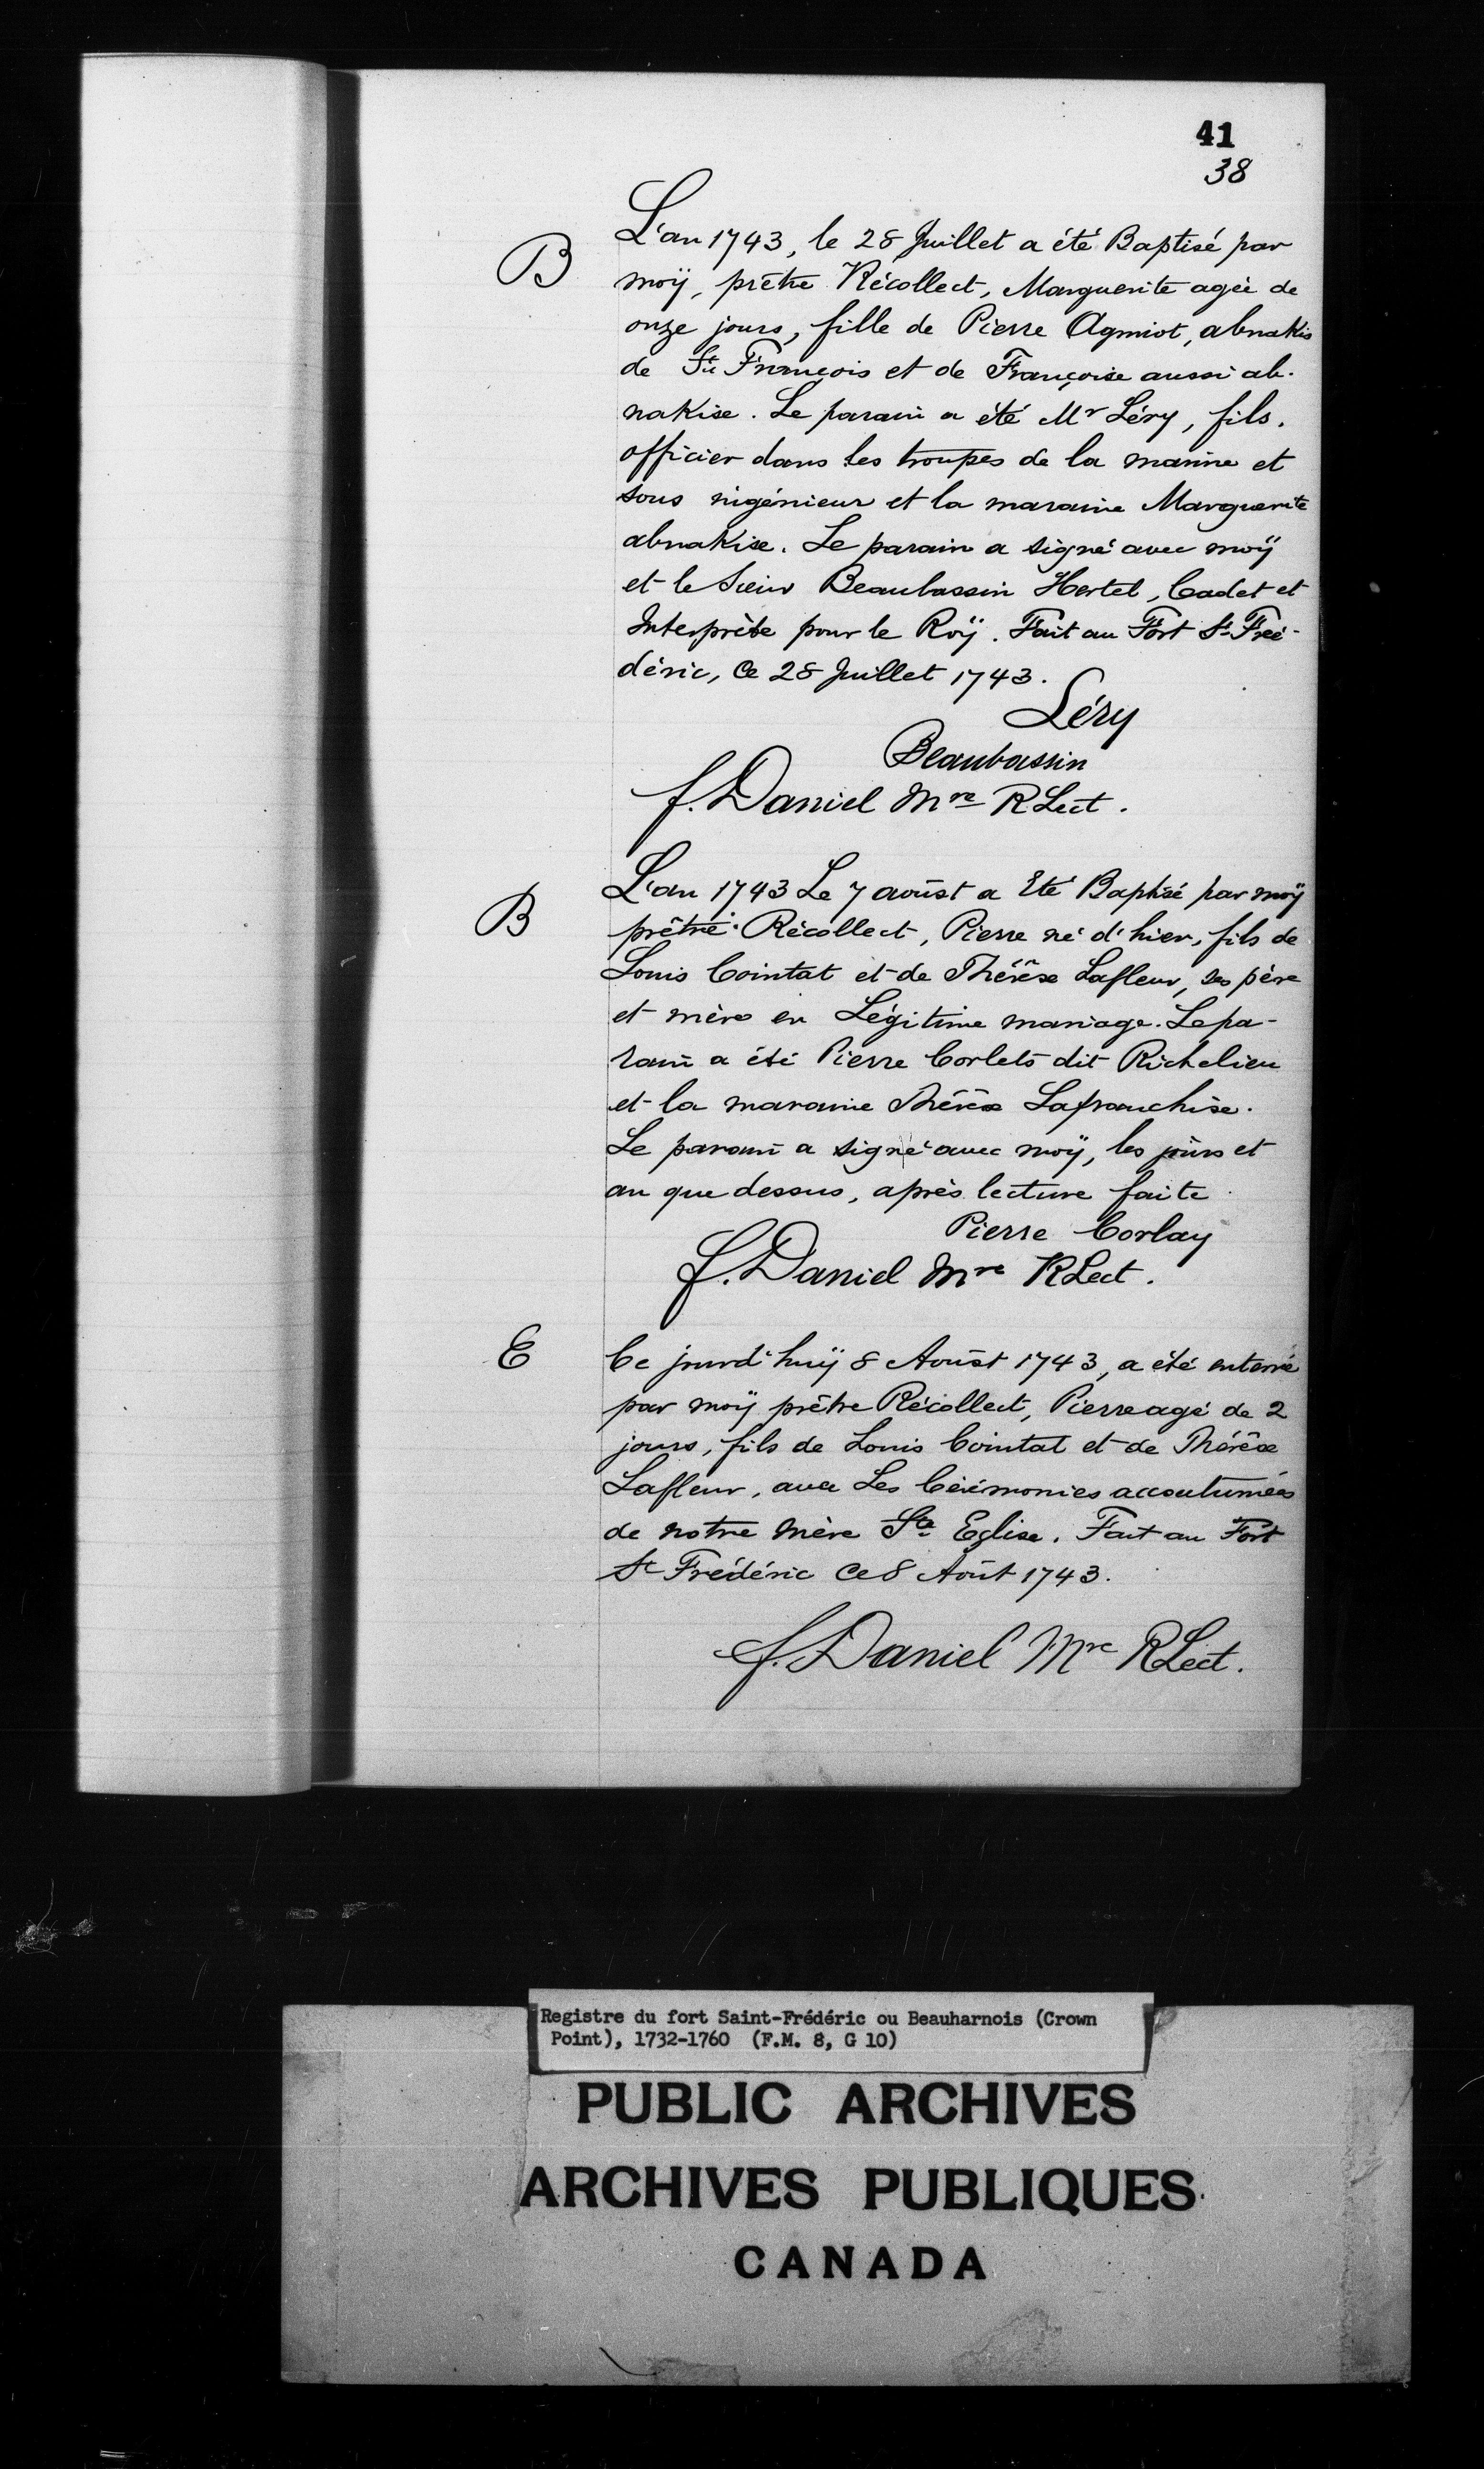 41
38
B
L'an 1743, le 28 Juillet a été Baptisé par
moÿ, prêtre Récollect, Marguerite agée de
onze jours, fille de Pierre Agmiot, abnakis
de St François et de Françoise aussi ab-
nakise. Le parain a été Mr Léry, fils,
officier dans les troupes de la marine et
sous ingénieur et la maraine Marguerite
abnakise. Le parain a signé avec moÿ
et le Sieur Beaubassin Hertel, Cadet et
Interprète pour le Roÿ. Fait au Fort St Fré-
déric, Ce 28 Juillet 1743.
Léry
Beaubassin
f. Daniel Mre RLect.
B
L'an 1743 Le 7 aoûst a Eté Baptisé par moÿ
prêtre Récollect, Pierre né d'hier, fils de
Louis Cointat et de Thérèse Lafleur, ses père
et mère en Légitime mariage. Le pa-
rain a été Pierre Corlets dit Richelieu
et la maraine Thérèse Lafranchise.
Le parain a signé avec moÿ, les jours et
an que dessus, après lecture faite
Pierre Corlay
f. Daniel Mre RLect.
E
Ce jourd'huÿ 8 Aoûst 1743, a été enterré
par moÿ prêtre Récollect, Pierre agé de 2
jours, fils de Louis Cointat et de Thérèse
Lafleur, avec Les Cérémonies accoutumées
de notre mère Ste Eglise. Fait au Fort
St Frédéric Ce 8 Août 1743.
f. Daniel Mre RLect.
Registre du fort Saint-Frédéric ou Beauharnois (Crown
Point), 1732-1760 (F.M. 8, G 10)
PUBLIC ARCHIVES
ARCHIVES PUBLIQUES
CANADA